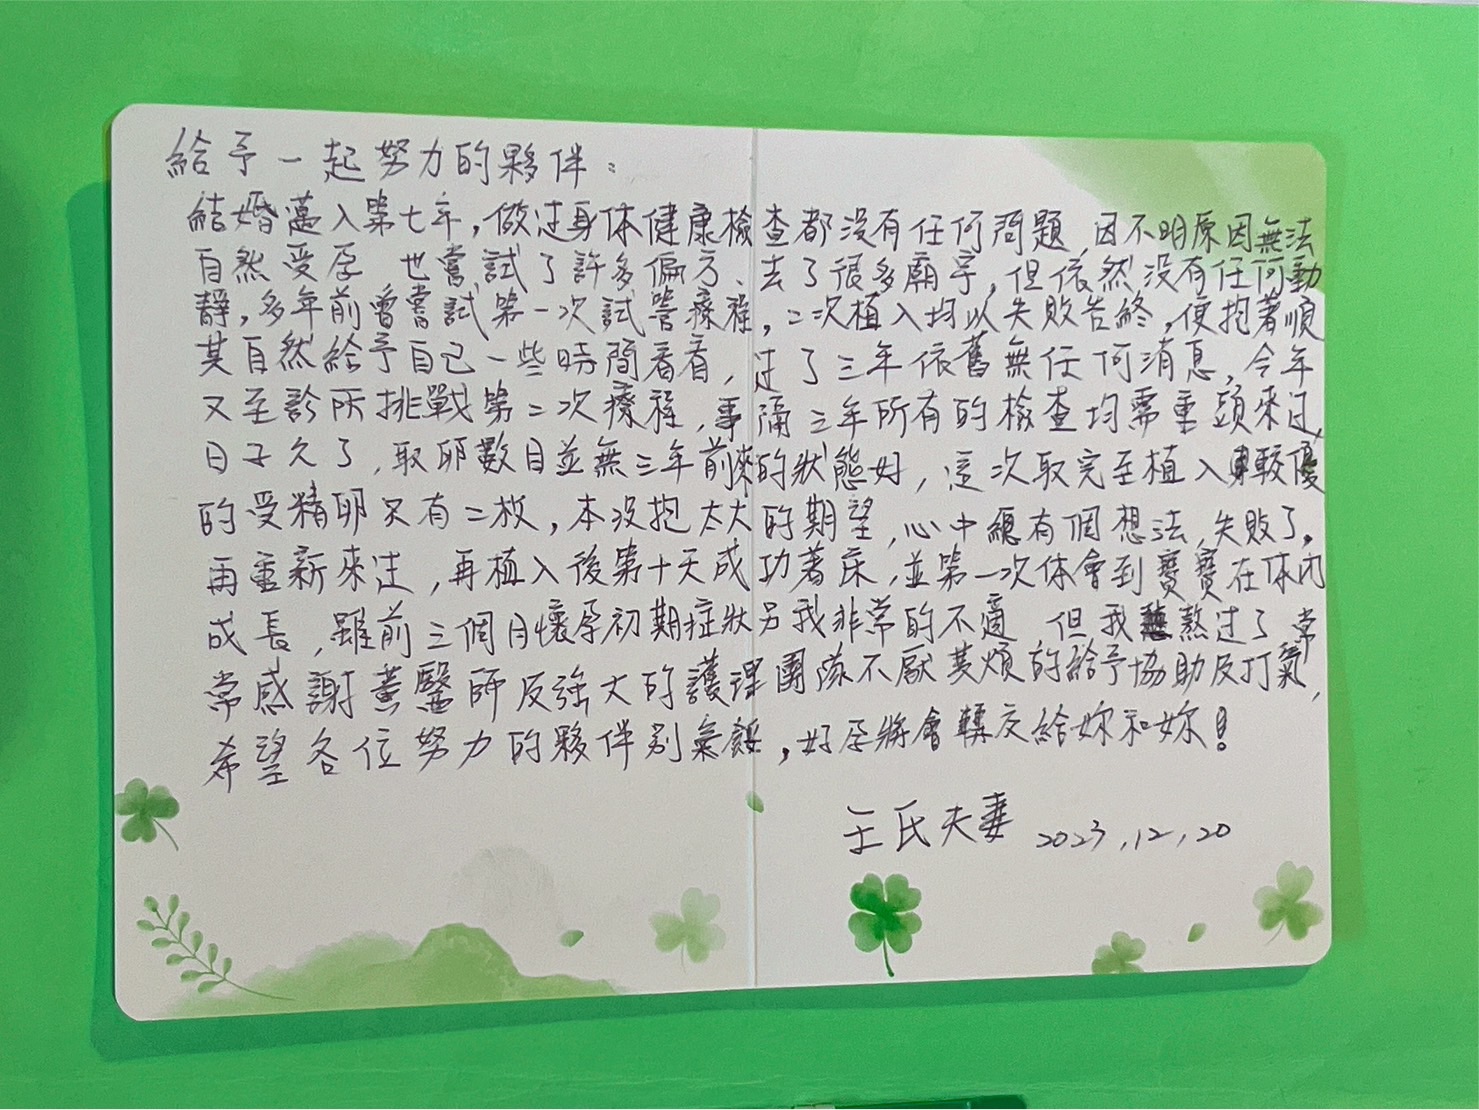 給予一起努力的夥伴：
結婚邁入第七年，做过身体健康檢查都没有任何問題，因不明原因無法
自然受孕，也嘗試了許多偏方、去了很多廟宇，但依然没有任何動
靜，多年前曾嘗試第一次試管療程，二次植入均以失敗告終，便抱著順
其自然給予自己一些時間看看，过了三年依舊無任何消息，今年
又至診所挑戰第二次療程，事隔三年所有的檢查均需重頭來过，
日子久了，取卵數目並無三年前來的狀態好，這次取完至植入較優
的受精卵只有二枚，本没抱太大的期望，心中總有個想法，失敗了，
再重新來过，再植入後第十天成功著床，並第一次体會到寶寶在体内
成長，雖前三個月懷孕初期症狀另我非常的不適，但我熬过了，常
常感謝黃醫師及強大的護理團隊不厭其煩的給予協助及打氣，
希望各位努力的夥伴别氣餒，好孕將會轉交給妳和妳！
王氏夫妻 2023.12.20